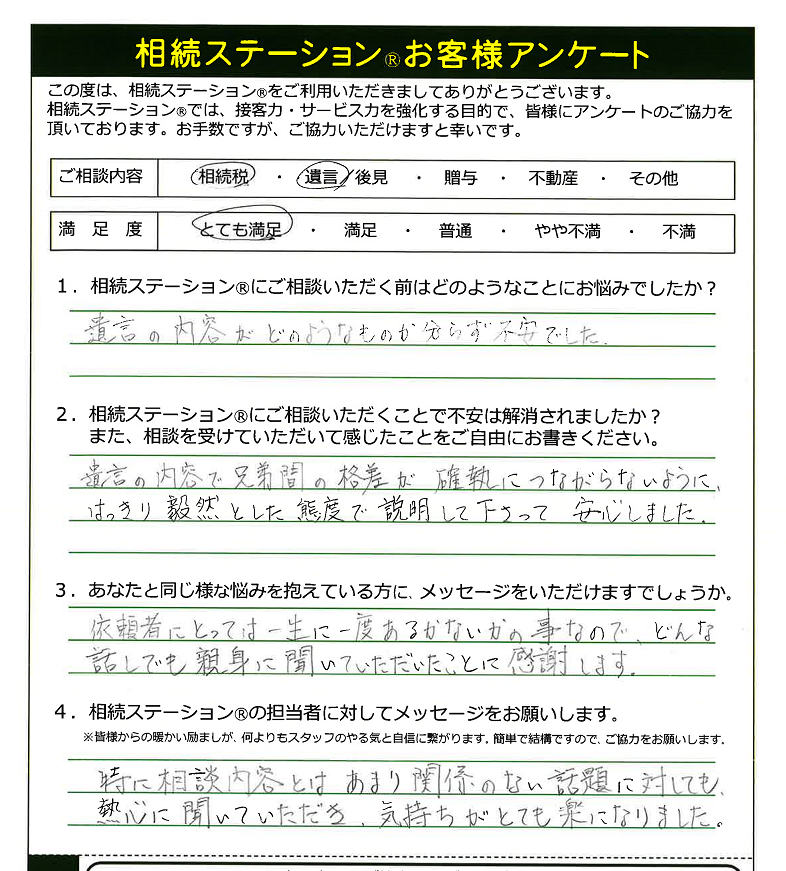 相続ステーション®お客様アンケート
この度は、相続ステーション®をご利用いただきましてありがとうございます。
相続ステーション®では、接客力・サービス力を強化する目的で、皆様にアンケートのご協力を
頂いております。お手数ですが、ご協力いただけますと幸いです。
ご相談内容 相続税 ・ 遺言/後見 ・ 贈与 ・ 不動産 ・ その他
満足度 とても満足 ・ 満足 ・ 普通 ・ やや不満 ・ 不満
1．相続ステーション®にご相談いただく前はどのようなことにお悩みでしたか？
遺言の内容がどのようなものか分らず不安でした.
2．相続ステーション®にご相談いただくことで不安は解消されましたか？
また、相談を受けていただいて感じたことをご自由にお書きください。
遺言の内容で兄弟間の格差が確執につながらないように、
はっきり毅然とした態度で説明して下さって安心しました.
3．あなたと同じ様な悩みを抱えている方に、メッセージをいただけますでしょうか。
依頼者にとっては一生に一度あるかないかの事なので、どんな
話しでも親身に聞いていただいたことに感謝します.
4．相続ステーション®の担当者に対してメッセージをお願いします。
※皆様からの暖かい励ましが、何よりもスタッフのやる気と自信に繋がります。簡単で結構ですので、ご協力をお願いします。
時に相談内容とはあまり関係のない話題に対しても、
熱心に聞いていただき、気持ちがとても楽になりました。